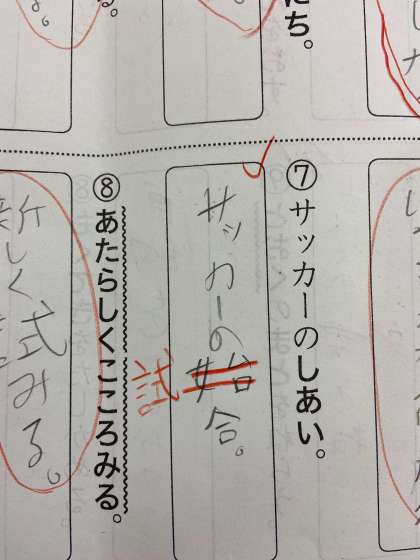 たち。
る。
⑦サッカーのしあい。
サッカーの始合。
試
⑧あたらしくこころみる。
新しく試みる。